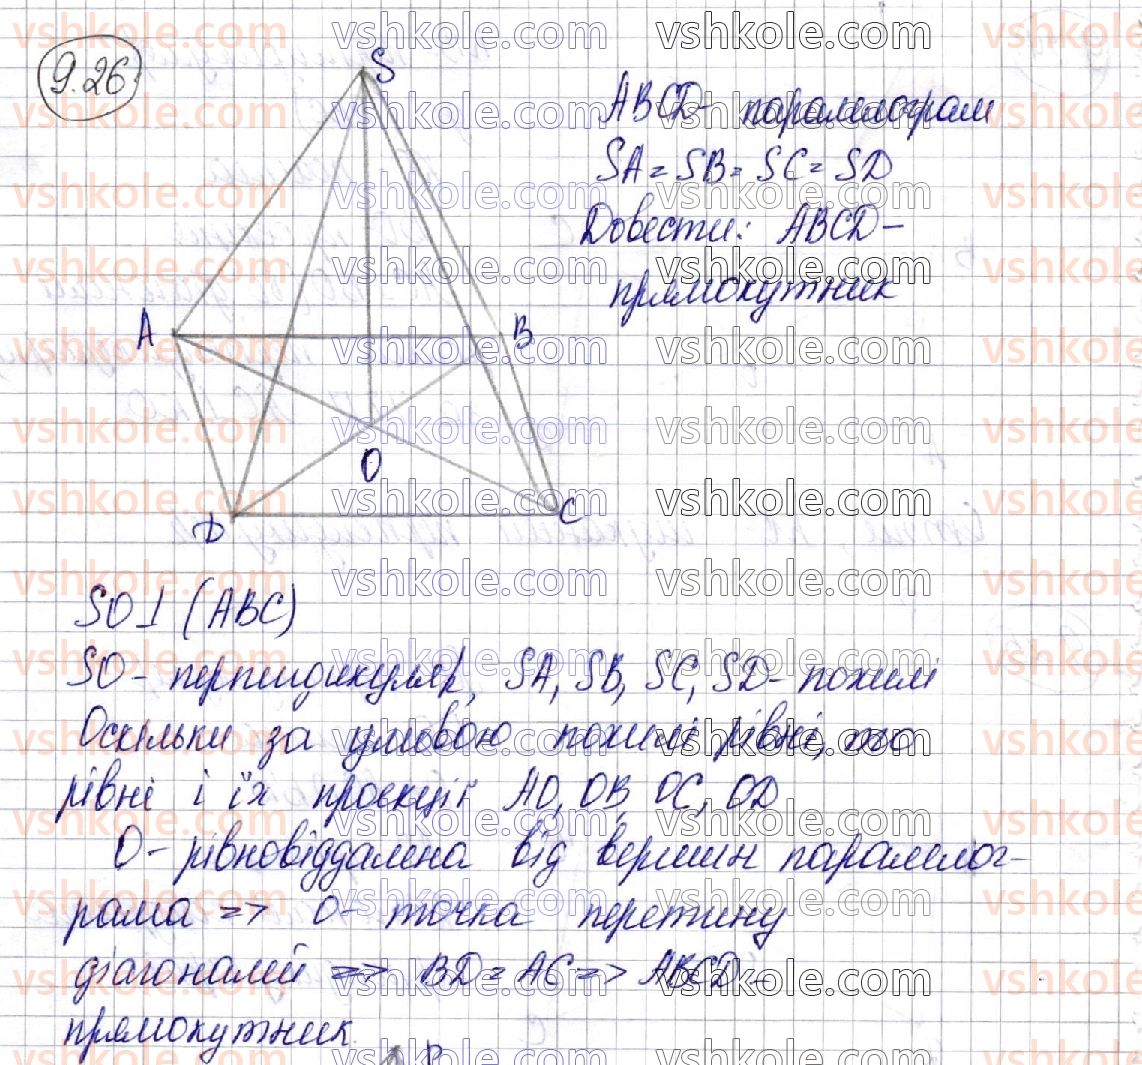 9.26
S
ABCD - паралелограм
SA = SB = SC = SD
Довести: ABCD -
прямокутник
A
B
O
D
C
SO ⊥ (ABC)
SO - перпендикуляр, SA, SB, SC, SD - похилі
Оскільки за умовою похилі рівні, то
рівні і їх проекції AO, OB, OC, OD
O - рівновіддалена від вершин паралелог-
рама => O - точка перетину
діагоналей => BD = AC => ABCD -
прямокутник
vshkole.com